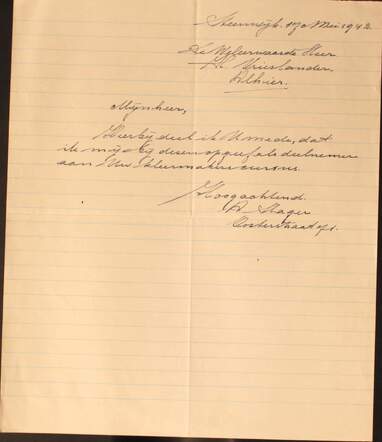 Steenwijk, 1 Mei 1942.
De Weleerwaarde Heer
Vrieslander,
Alhier.
Mijnheer,
Hierbij deel ik U mede, dat
ik mij bij dezen opgeef als deelnemer
aan Uw Kleermakercursus.
Hoogachtend.
Slager
Oosterstraat